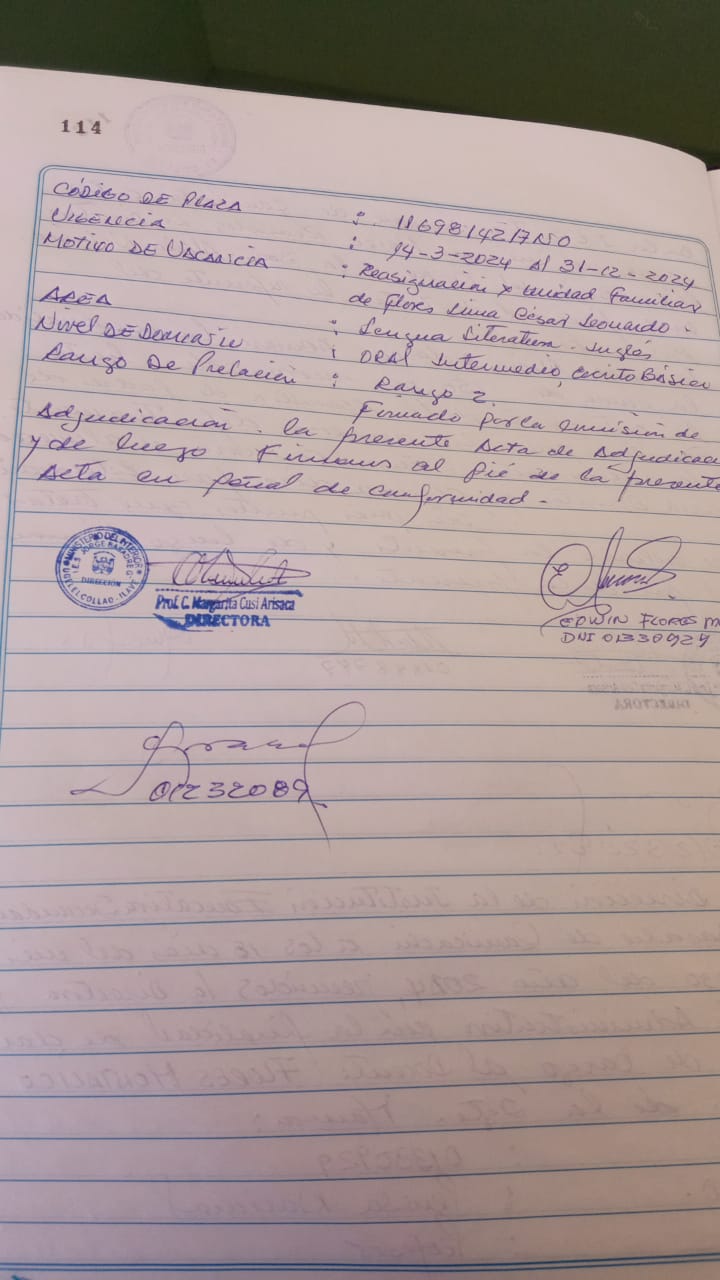 114
CÓDIGO DE PLAZA : 1169814217N0
VIGENCIA : 14-3-2024 Al 31-12-2024
MOTIVO DE VACANCIA : Reasignación x unidad Familiar
de Flores Lima César Leonardo.
AREA : Lengua Literatura - Inglés
Nivel DE DOMINIO : ORAL Intermedio, Escrito Básico
Rango De Prelación : Rango 2.
Firmado por la emisión de
Adjudicación. la presente Acta de Adjudicac
y de luego Firmamos al pié de la presente
Acta en señal de conformidad.
MINISTERIO DEL
I.E.S. JORGE
DIRECCIÓN
UGEL EL COLLAO - ILAVE
Prof. C. Margarita Cusi Arisaca
DIRECTORA
EDWIN FLORES M
DNI 01330929
01232089